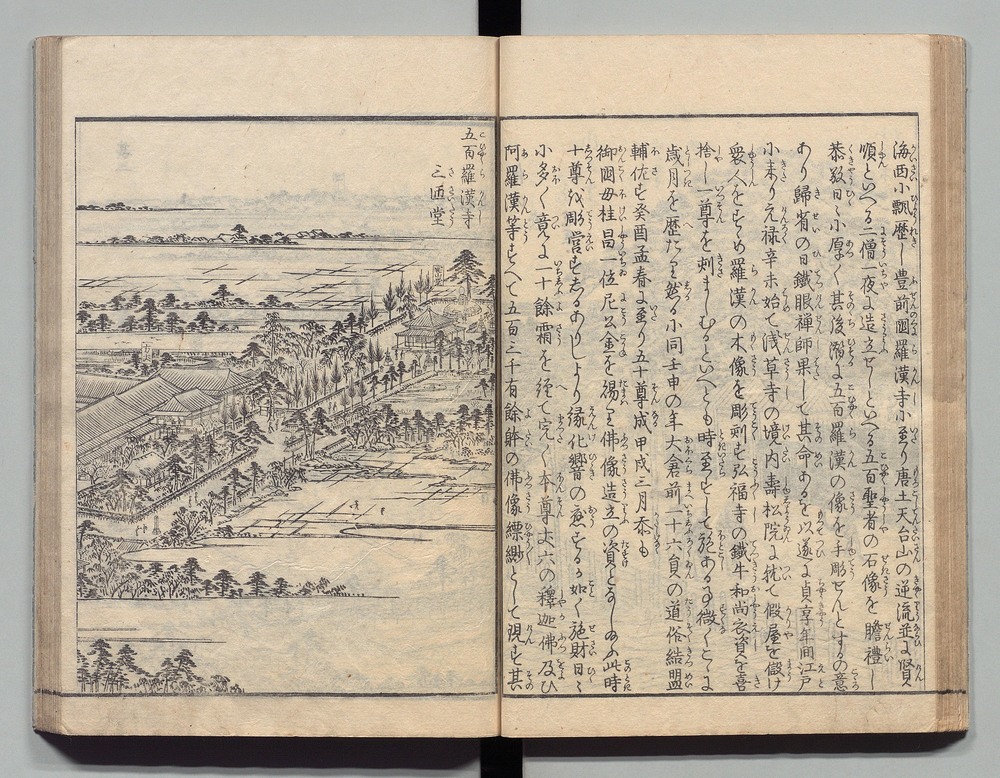 海西小飄歴し豊前國羅漢寺に至り唐土天台山の逆流並に賢
順といへる二僧一夜に造立せしといへる五百聖者の石像を瞻禮し
恭敬日々小厚く其後潜に五百羅漢の像を手彫せんとするの意
あり歸省の日鐵眼禅師果して其命あるを以遂に貞享年間江戸
小来り元禄辛未始て浅草寺の境内壽松院に就て假屋を儲け
衆人をすゝめ羅漢の木像を彫刻す弘福寺の鐵牛和尚衣資を喜
捨し一尊を刻ましむるといへとも時至すして施ある事微くとくに
歳月を歴たり然る小同壬申の年大倉前一十六員の道俗結盟
輔佐す癸酉孟春に至り五十尊成甲戌三月忝も
御國母桂昌一位尼公金を賜て佛像造立の資となし給ふ此時
十尊を彫営す
しより縁化響の応するか如く施財日々
小多く竟に一十餘霜を経て完く本尊丈六の釋迦佛及ひ
阿羅漢等すへて五百三十有餘躰の佛像縹緲として現す其
五百羅漢寺
三匝堂